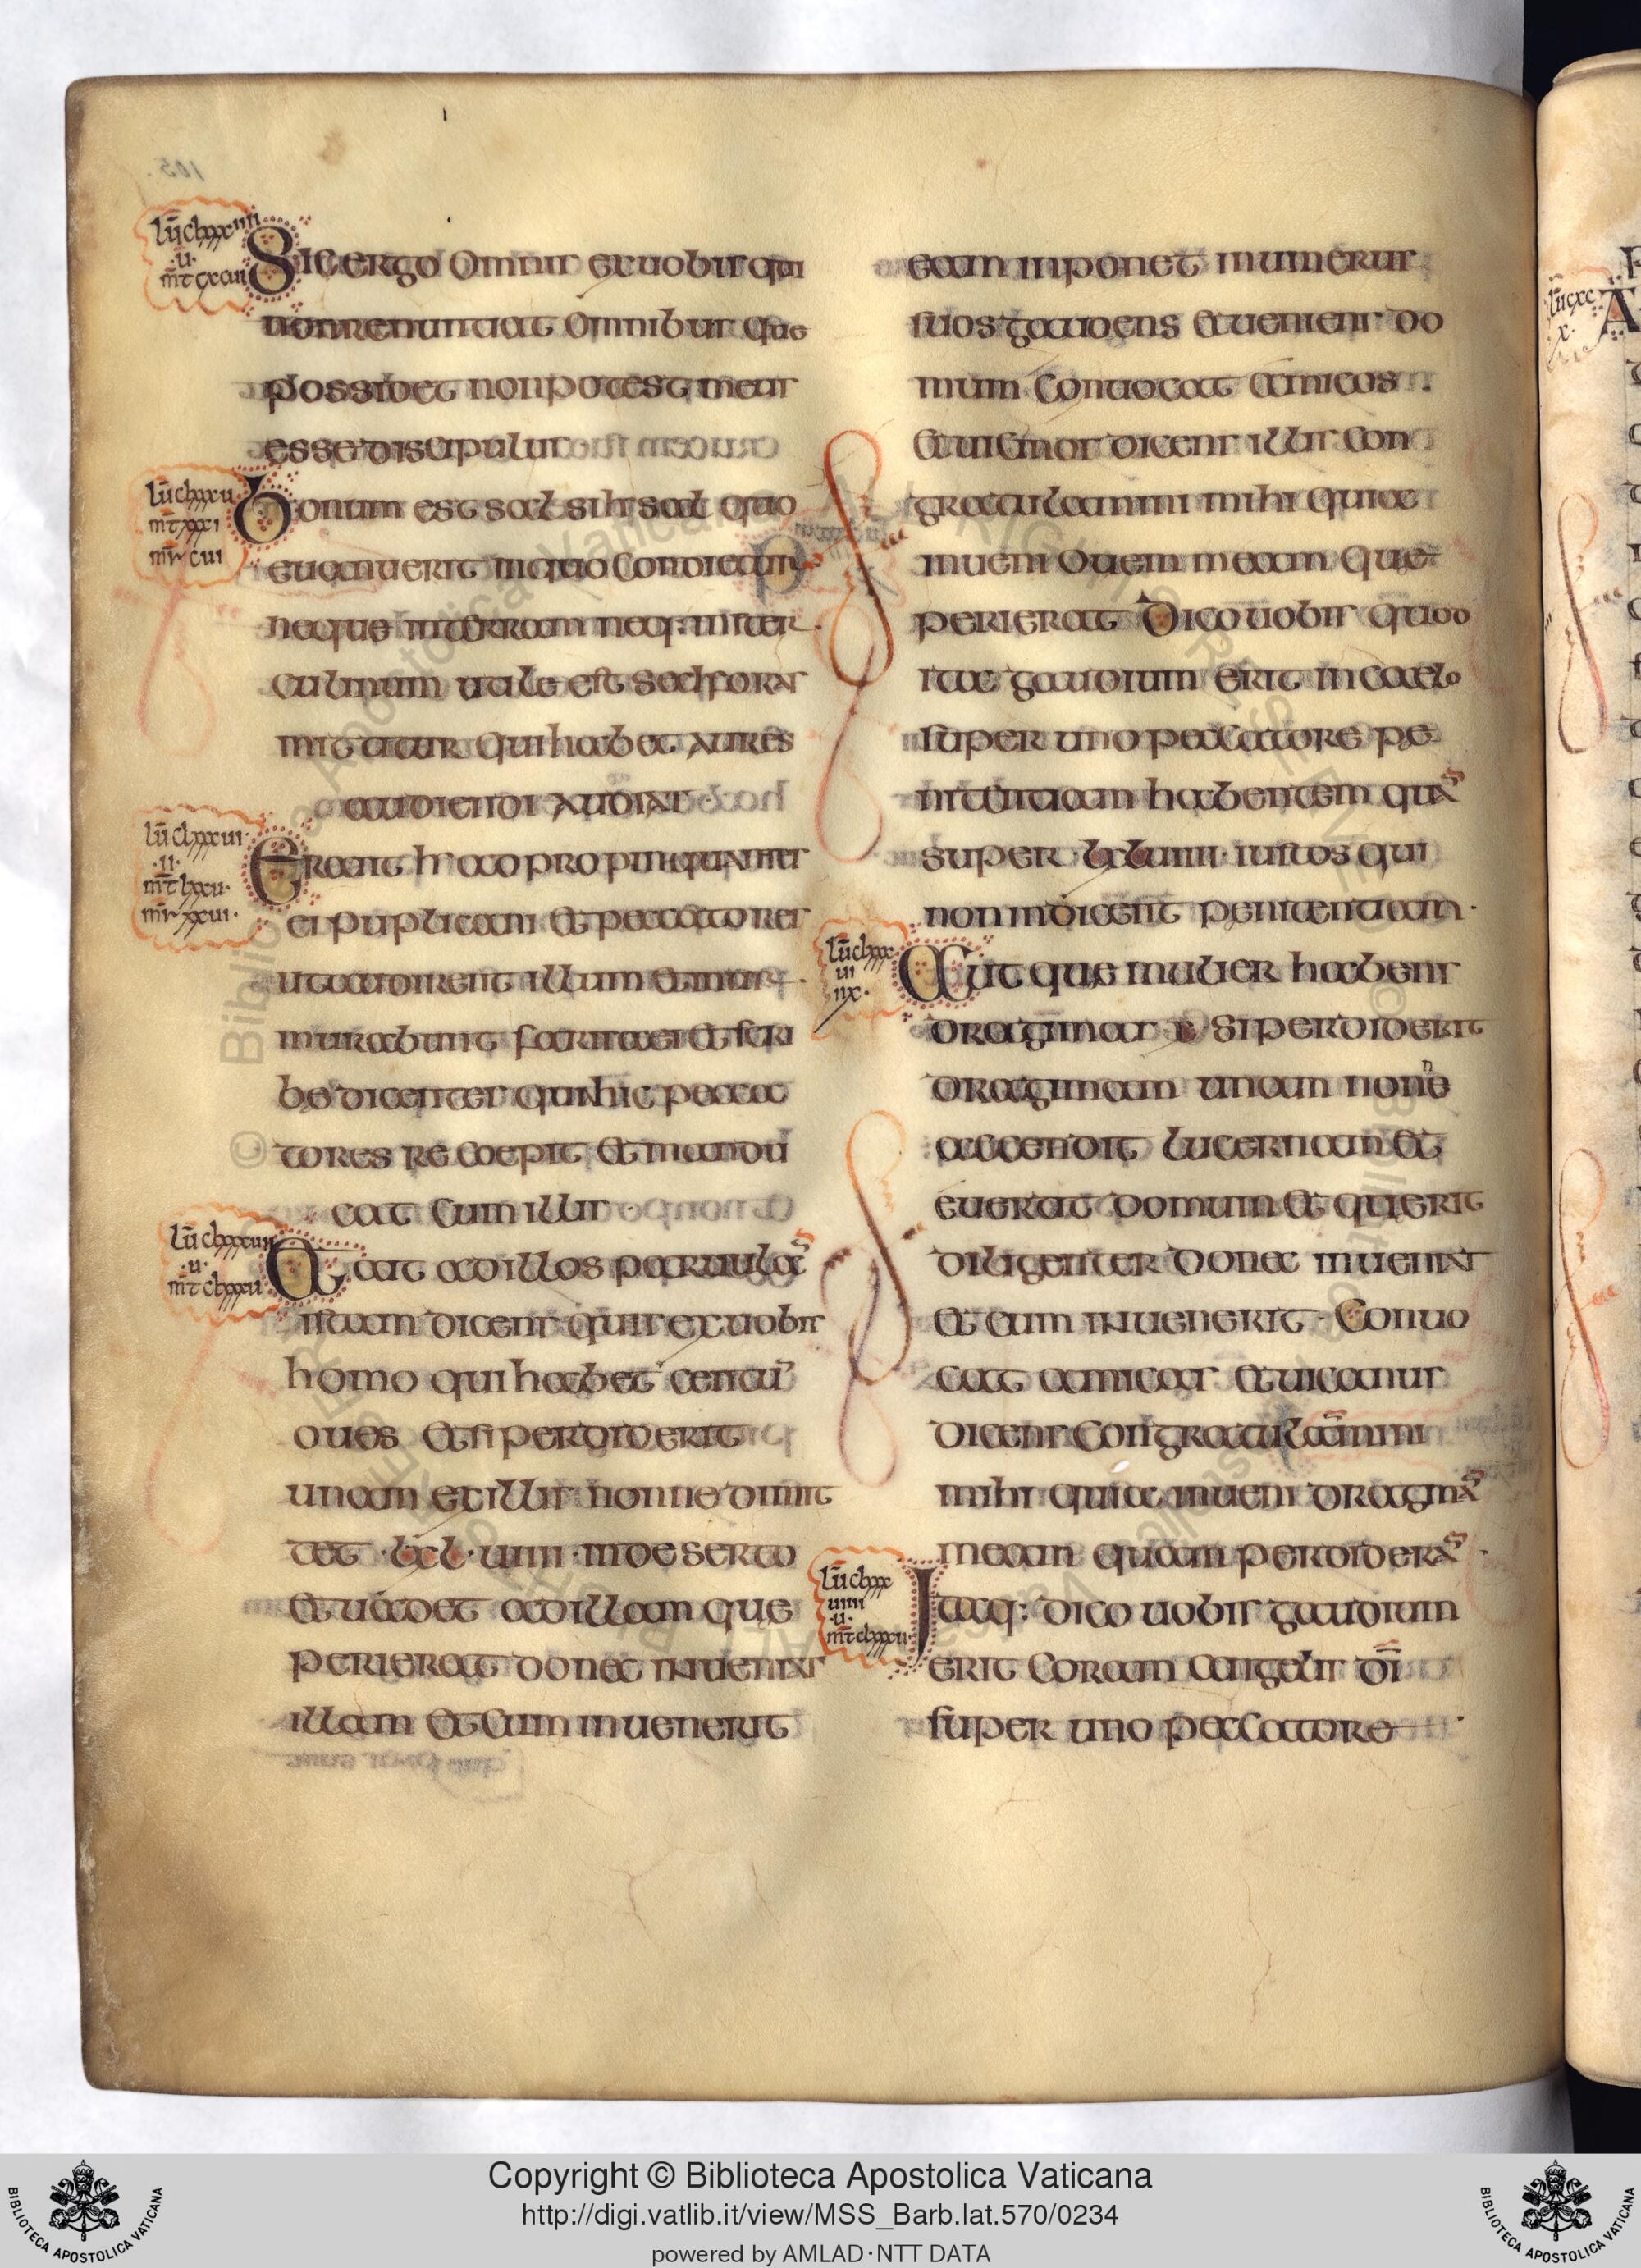 lū clxxxiiii
u
mt cxcui
Sic ergo omnis ex uobis qui
non renuntiat omnibus que
possidet non potest meus
esse discipulus
lū clxxxu
mt xxxi
mr cui
Bonum est sal si hꞅ sal quod
euanuerit in quo condietur
neque in terram neq: in ster
culinum utile est sed foras
mittetur qui habet aures
audiendi audiat
lū clxxxui
ii
mt lxxii
mr xxui
Erant hr adpropinquantes
ei puplicani et peccatores
ut audirent illum et mur
murabunt farisaei et scri
be dicentes quia hic pecca
tores recoepit et mandu
cat cum illis
lū clxxxuii
u
mt clxxxii
Et ait ad illos parabolā
istam dicens quis ex uobis
homo qui habet centū
oues et si perdiderit
unam ex illis nonne dimit
tet lxl uiiii in deserto
et uadet ad illam que
perierat donec inueniat
illam et cum inuenerit
eam inponet in umerus
suos gaudens et ueniens do
mum conuocat amicos
et uicinos dicens illis con
gratulamini mihi quia
inueni ouem meam que
perierat Dico uobis quod
ita gaudium erit in caelo
super uno peccatore pe
nitentiam habentem quā
super lxluiiii iustos qui
non indigent penitentiam
lū clxxx
uiii
x
Aut que mulier habens
dragmas x si perdiderit
dragmam unam nonne
accendit lucernam et
euerrat domum et querit
diligenter donec inueniat
et cum inuenerit Conuo
cat amicas et uicanus
dicens congratulamini
mihi quia inueni dragmā
meam quam perdiderā
lū clxxx
uiiii
u
mt clxxxii
Itaq: dico uobis gaudium
erit coram angelis dī
super uno peccatore
Copyright © Biblioteca Apostolica Vaticana
http://digi.vatlib.it/view/MSS_Barb.lat.570/0234
powered by AMLAD·NTT DATA
BIBLIOTECA APOSTOLICA VATICANA
BIBLIOTECA APOSTOLICA VATICANA